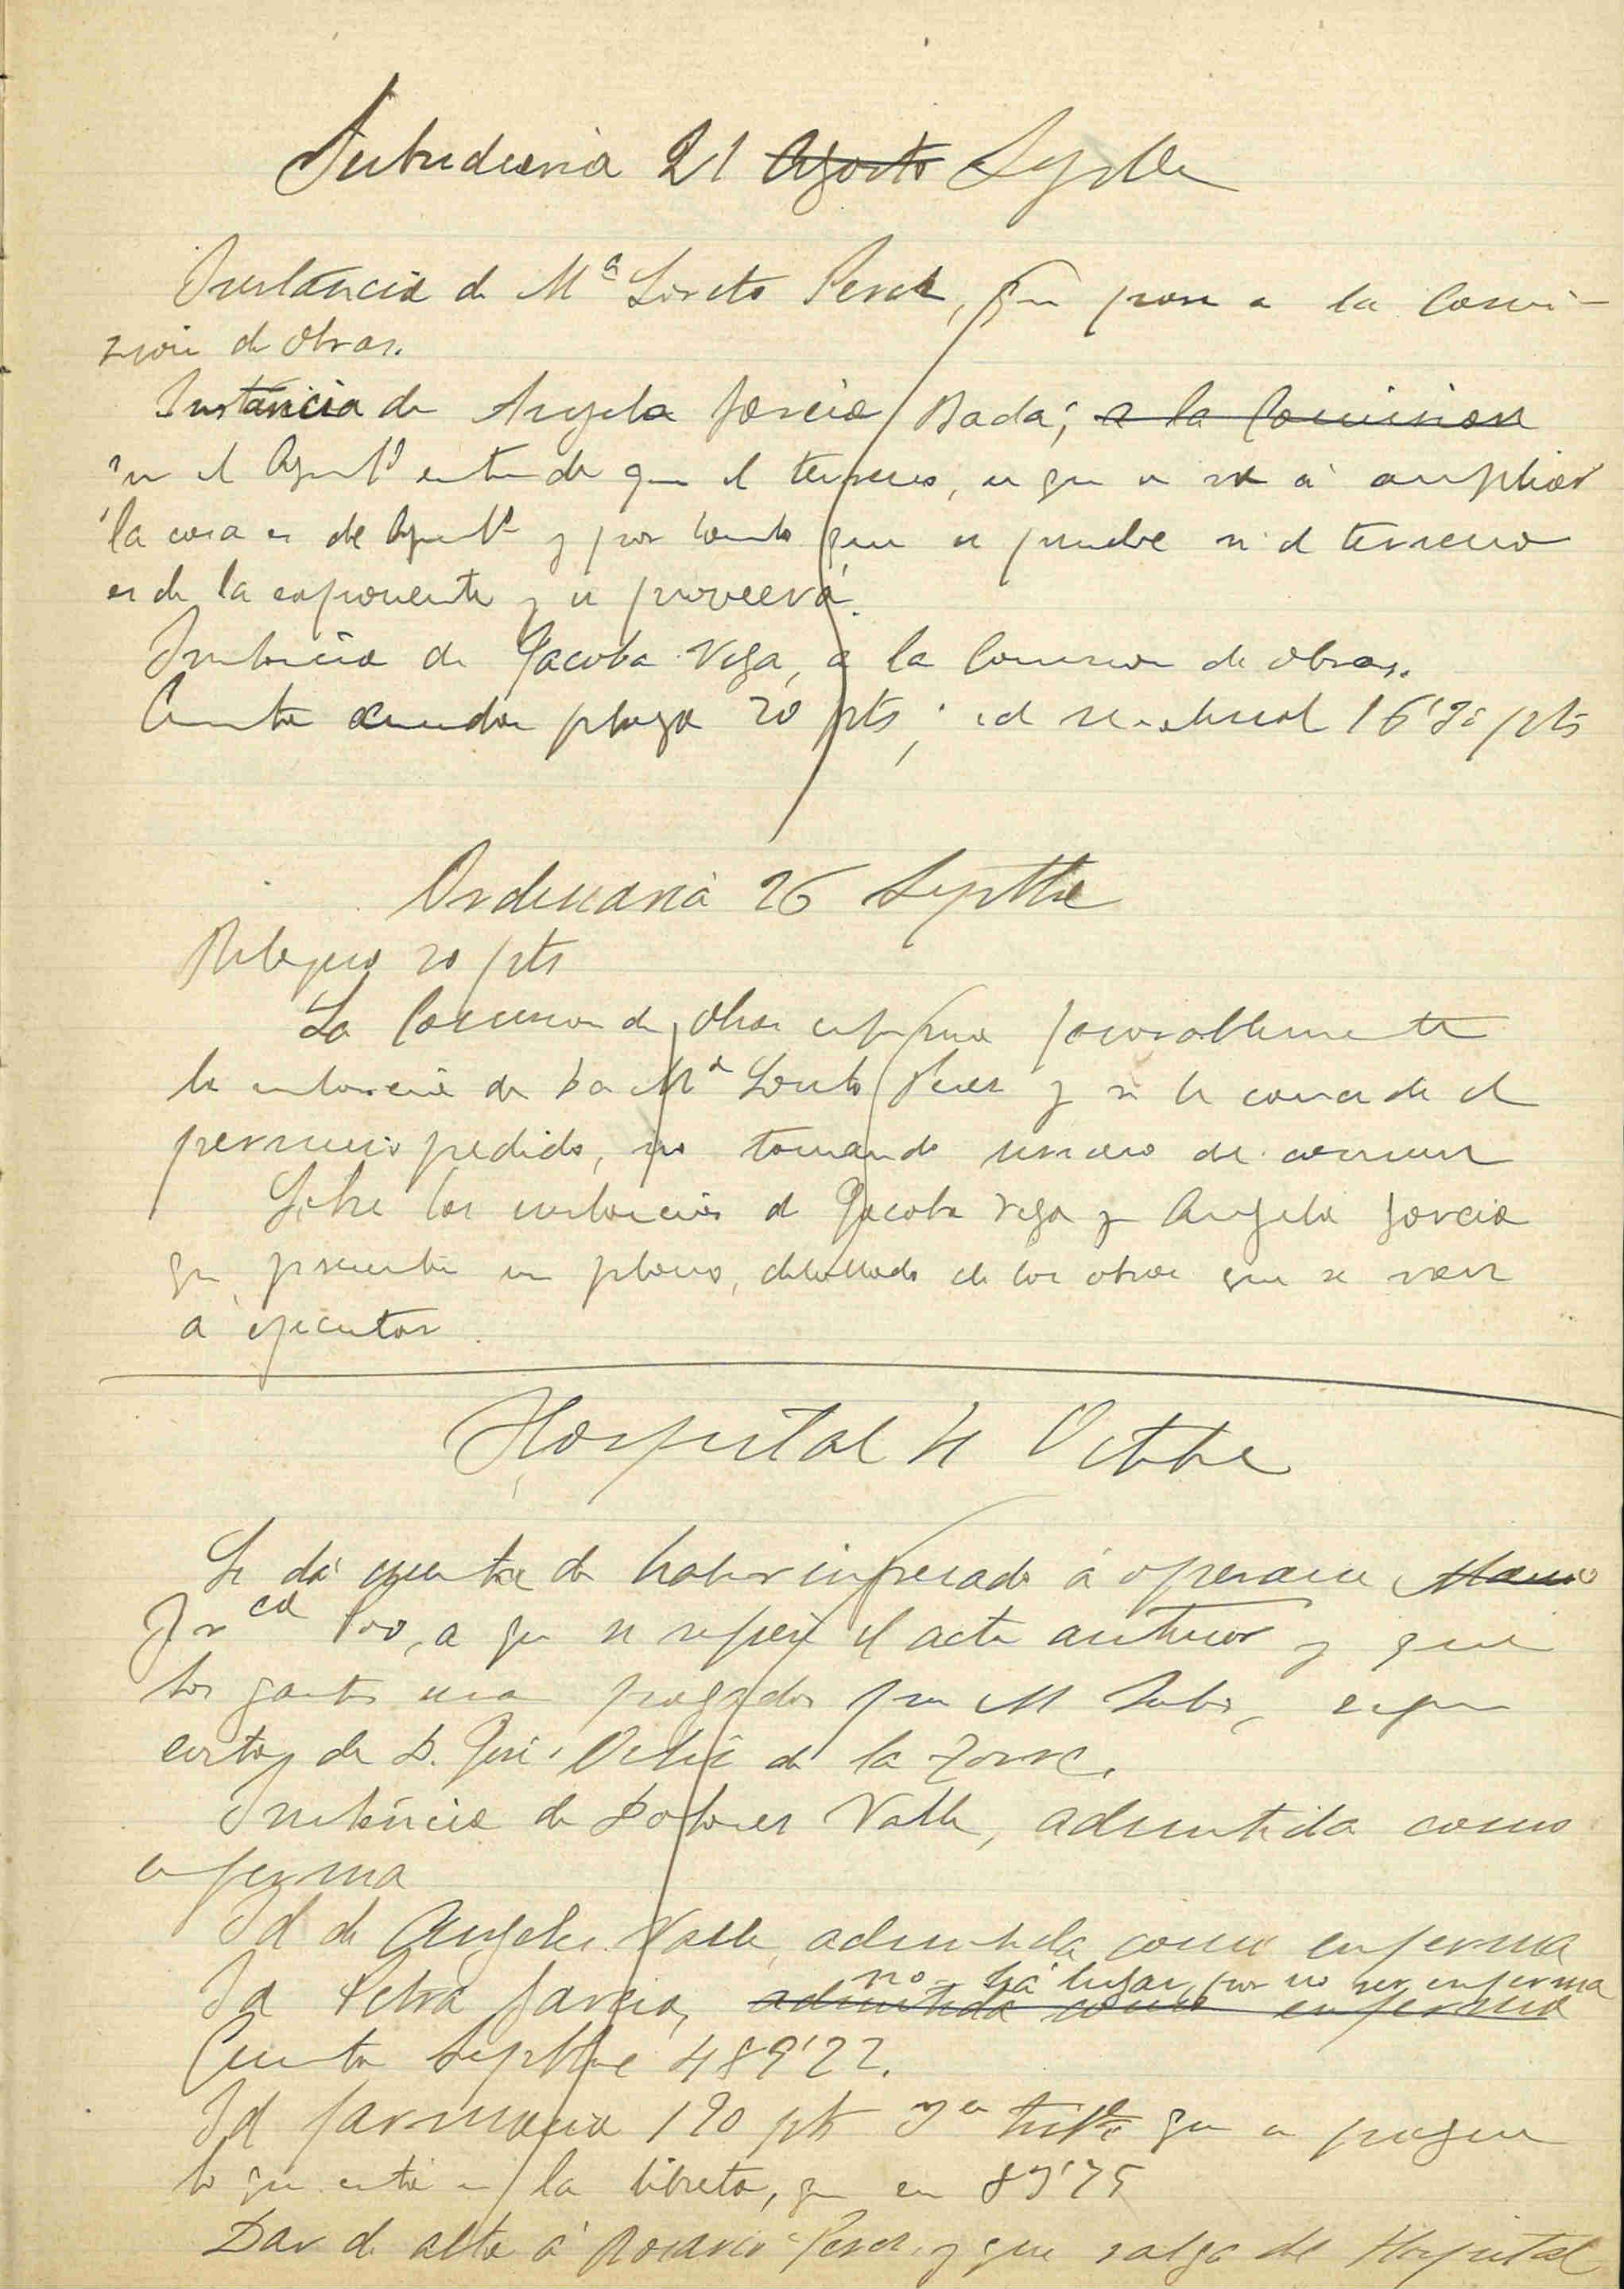 Subsidiaria 21 Agosto Septbe
Instancia de Mª Loreto Perez, que pase a la Comi-
sion de Obras.
Instancia de Angela Garcia Bada; a la Comision
el Ayunt° entiende que el terreno, en que se va á ampliar
la casa es del Ayunt° y por tanto que se pruebe si el terreno
es de la exponente y se proveerá.
Instancia de Jacoba Vega, a la Comision de obras.
Cuenta plaza 20 pts; id pts
Ordinaria 26 Septbre
Relojero 20 pts
La Comision de Obras informa favorablemente
la instancia de Da Mª Loreto Perez y se le concede el
permiso pedido, no tomando terreno de comun
Sobre las instancias de Jacoba Vega y Angela Garcia
que presenten un plano, detallado de las obras que se van
á ejecutar.
Hospital 4 Octbre
Se dá cuenta de haber ingresado á operarse
Frca Poo, a que se refiere el acta anterior y que
los gastos sean pagados por M , segun
carta de D. José de la Torre.
Instancia de Dolores Valle, admitida como
enferma
Id de Angeles Valle, admitida como enferma
no há lugar por no ser enferma
Id Petra Garcia, admitida como enferma
Cuenta Septbre 489'22.
Id farmacia 190 pts 3er que se paguen
lo que está en la libreta, que son 89'75
Dar de alta á Rosario Perez, y que salga del Hospital